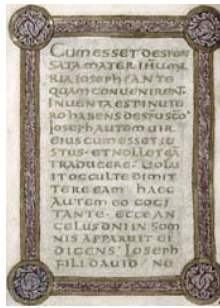 CUM ESSET DESPON
SATA MATER IHU MA
RIA IOSEPH ANTE
QUAM CONVENIRENT
INVENTA EST INUTE
RO HABENS DE SPU SCO
IOSEPH AUTEM UIR
EIUS CUM ESSET IU
STUS ET NOLLET EA
TRADUCERE UOLU
IT OCCULTE DIMIT
TERE EAM HAEC
AUTEM EO COGI
TANTE ECCE AN
GELUS DNI IN SOM
NIS APPARUIT EI
DICENS IOSEPH
FILI DAUID NO